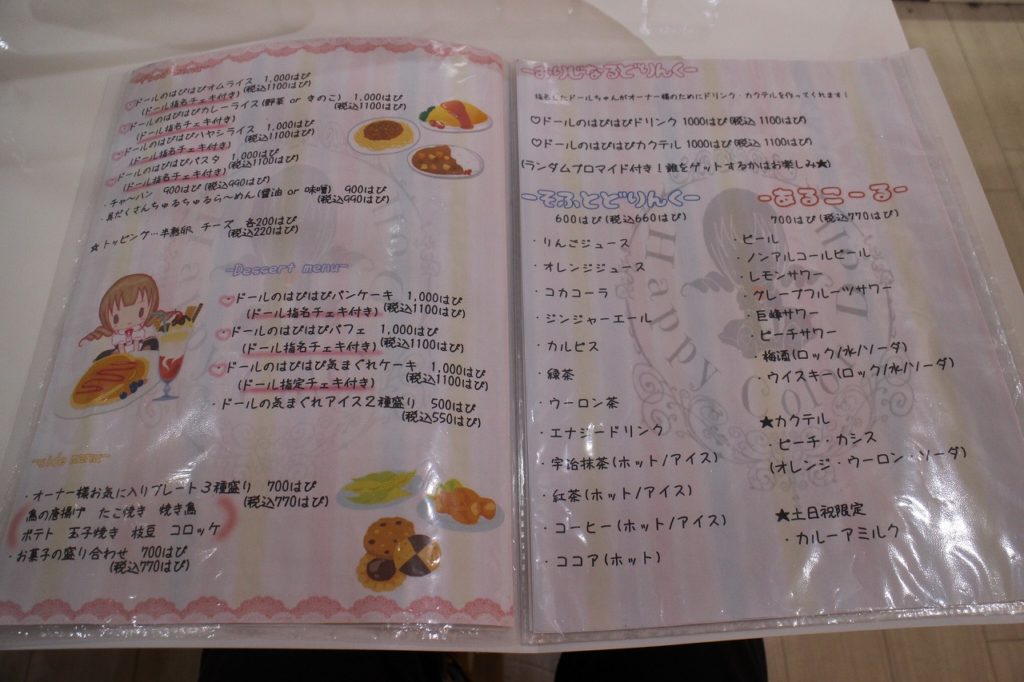 -Food menu-
♡ドールのはぴはぴオムライス 1,000はぴ
(ドール指名チェキ付き) (税込1100はぴ)
♡ドールのはぴはぴカレーライス(野菜 or きのこ) 1,000はぴ
(ドール指名チェキ付き) (税込1100はぴ)
♡ドールのはぴはぴハヤシライス 1,000はぴ
(ドール指名チェキ付き) (税込1100はぴ)
♡ドールのはぴはぴパスタ 1,000はぴ
(ドール指名チェキ付き) (税込1100はぴ)
・チャーハン 900はぴ(税込990はぴ)
・具だくさんちゅるちゅるら〜めん(醤油 or 味噌) 900はぴ
(税込990はぴ)
☆トッピング…半熟卵 チーズ 各200はぴ
(税込220はぴ)
-Dessert menu-
♡ドールのはぴはぴパンケーキ 1,000はぴ
(ドール指名チェキ付き) (税込1100はぴ)
♡ドールのはぴはぴパフェ 1,000はぴ
(ドール指名チェキ付き) (税込1100はぴ)
♡ドールのはぴはぴ気まぐれケーキ 1,000はぴ
(ドール指定チェキ付き) (税込1100はぴ)
・ドールの気まぐれアイス2種盛り 500はぴ
(税込550はぴ)
-side menu-
・オーナー様お気に入りプレート3種盛り 700はぴ
(税込770はぴ)
鳥の唐揚げ たこ焼き 焼き鳥
ポテト 玉子焼き 枝豆 コロッケ
・お菓子の盛り合わせ 700はぴ
(税込770はぴ)
-おりじなるどりんく-
指名したドールちゃんがオーナー様のためにドリンク・カクテルを作ってくれます!
♡ドールのはぴはぴドリンク 1000はぴ(税込 1100はぴ)
♡ドールのはぴはぴカクテル 1000はぴ(税込 1100はぴ)
(ランダムブロマイド付き!誰をゲットするかはお楽しみ★)
-そふとどりんく-
600はぴ(税込660はぴ)
・りんごジュース
・オレンジジュース
・コカコーラ
・ジンジャーエール
・カルピス
・緑茶
・ウーロン茶
・エナジードリンク
・宇治抹茶(ホット/アイス)
・紅茶(ホット/アイス)
・コーヒー(ホット/アイス)
・ココア(ホット)
-あるこーる-
700はぴ(税込770はぴ)
・ビール
・ノンアルコールビール
・レモンサワー
・グレープフルーツサワー
・巨峰サワー
・ピーチサワー
・梅酒(ロック/水/ソーダ)
・ウイスキー(ロック/水/ソーダ)
★カクテル
・ピーチ・カシス
(オレンジ・ウーロン・ソーダ)
★土日祝限定
・カルーアミルク
Happy Color